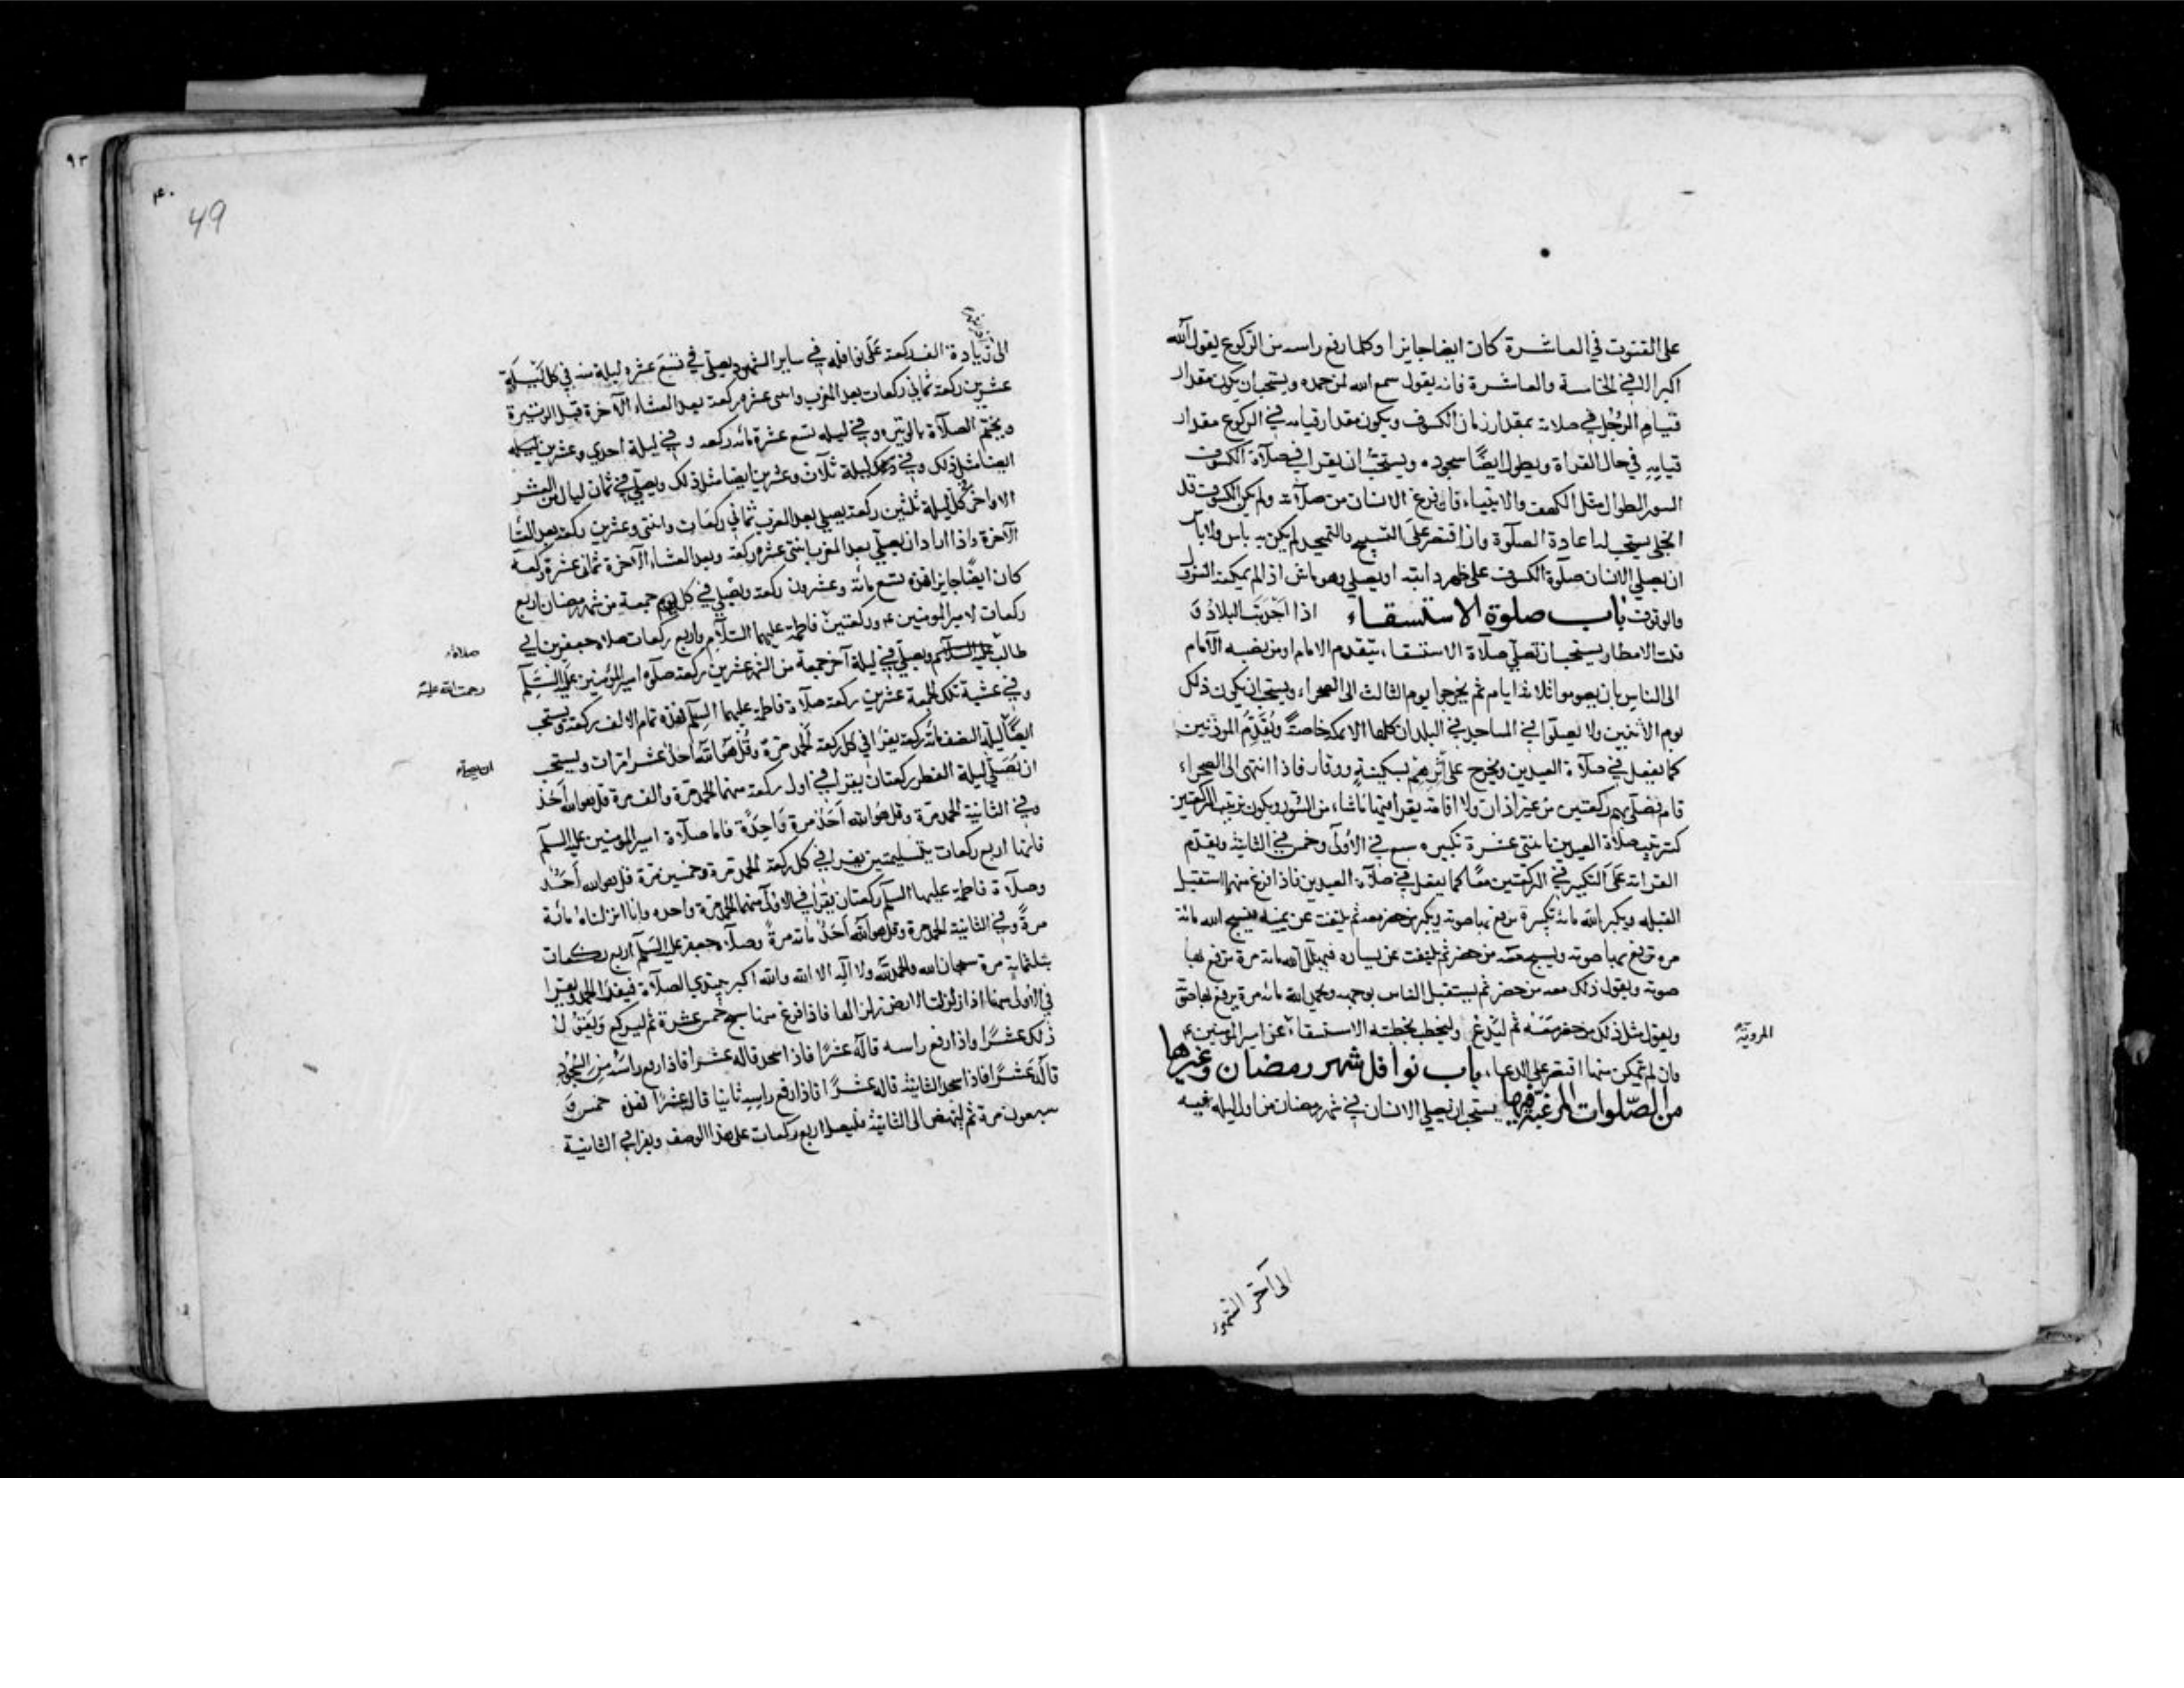 على القنوت في العاشرة كان ايضا جايزا وكلما رفع راسه من الركوع يقول الله
اكبر الا في الخامسة والعاشرة فانه يقول سمع الله لمن حمده ويستحب ان يكون مقدار
قيام الرجل في صلاته بمقدار زمان الكسوف ويكون مقدار قيامه في الركوع مقدار
قيامه في حال القراة ويطول ايضًا سجوده ويستحب ان يقرا في صلاة الكسوف
السور الطوال مثل الكهف والانبياء فان فرغ الانسان من صلاته ولم يكن الكسوف قد
انجلى يستحب له اعادة الصلوة وان اقتصر على التسبيح والتحميد لم يكن به باس ولا باس
ان يصلي الانسان صلوة الكسوف على ظهر دابته او يصلي وهو ماش اذا لم يمكنه النزول
والوقوف باب صلوة الاستسقاء اذا اجدبت البلاد و
قلت الامطار يستحب ان تصلي صلاة الاستسقاء، يتقدم الامام او من نصبه الامام
الى الناس بان يصوموا ثلاثة ايام ثم يخرجوا يوم الثالث الى الصحراء، ويستحب ان يكون ذلك
يوم الاثنين ولا يصلوا في المساجد في البلدان كلها الا بمكة خاصةً ويُقَدِّم الموذنين
كما يفعل في صلاة العيدين ويخرج على أثرهم بسكينةٍ ووقار فاذا انتهى الى الصحراء
قام فصلى بهم ركعتين من غير اذان ولا اقامة يقرا فيهما ما شاء من السور ويكون ترتيب الركعتين
كترتيب صلاة العيدين باثنتي عشرة تكبيره سبع في الأولى وخمس في الثانية ويقدم
القراءة على التكبير في الركعتين معًا كما يفعل في صلاة العيدين فاذا فرغ منهما استقبل
القبلة ويكبر الله مائة تكبيرة يرفع بها صوته ويكبر من حضر معه ثم يلتفت عن يمينه فيسبح الله مائة
مره يرفع بها صوته ويسبح معه من حضر ثم يلتفت عن يساره فيهلل الله مائة مرة يرفع بها
صوته ويقول ذلك معه من حضر ثم يستقبل الناس بوجهه ويحمد الله مائة مرة يرفع بها صوته
ويقول مثل ذلك من حضر معه ثم ليدع وليخطب بخطبة الاستسقاء عن امير المومنين ع
المروية
فان لم يتمكن منها اقتصر على الدعاء، باب نوافل شهر رمضان وغيرها
من الصلوات المرغبة فيها يستحب ان يصلي الانسان في شهر رمضان من اول ليلة فيه
الى آخر الشهر
٩٣
۴۰
49
الى زيادة الف ركعة على نوافله في ساير الشهور يصلى في تسع عشره ليلة منه في كل ليلة
عشرين ركعة ثماني ركعات بعد المغرب واثنى عشر ركعة بعد العشاء الآخرة قبل الوتيرة
ويختم الصلاة بالوتيره وفي ليلة تسع عشرة مائة ركعة وفي ليلة احدي وعشرين
ايضا مثل ذلك وفي ليلة ثلاث وعشرين ايضا مثل ذلك ويصلي في ثمان ليال من العشر
الاواخر في كل ليلة ثلثين ركعة يصلي بعد المغرب ثماني ركعات واثنتي وعشرين ركعة بعد العشاء
الآخرة واذا اراد ان يصلي بعد المغرب اثنتي عشره ركعة وبعد العشاء الآخرة ثماني عشرة ركعة
كان ايضًا جايزا فهذه تسع مائة وعشرون ركعة ويصلي في كل يوم جمعة من شهر رمضان اربع
ركعات لامير المومنين ع وركعتين فاطمة عليهما السلام واربع ركعات صلاة جعفر بن ابي
صلاة
طالب عليه السلام ويصلي في ليلة آخر جمعة من الشهر عشرين ركعة صلوة امير المؤمنين عليه السلم
رحمت الله عليه
وفي عشية تلك الجمعة عشرين ركعة صلاة فاطمة عليهما السلم فهذه تمام الالف ركعة ويستحب
ايضًا ليلة النصف مائة ركعة يقرا في كل ركعة الحمد مرة وقل هو الله احد عشر مرات ويستحب
ان يصلي ليلة الفطر ركعتان يقرا في اول ركعة منهما الحمد مرة والف مرة قل هو الله احد
وفي الثانية الحمد مرة وقل هو الله احد مرة واحدة فاما صلاة امير المومنين عليه السلم
فانها اربع ركعات بتسليمتين يقرا في كل ركعة الحمد مرة وخمسين مرة قل هو الله أحد
وصلاة فاطمة عليهما السلم ركعتان يقرا في الاولى منهما الحمد مرة واحده وانا انزلناه مائة
مرة وفي الثانية الحمد مرة وقل هو الله أحد مائة مرة وصلاة جعفر عليه السلم اربع ركعات
بثلثماية مرة سبحان الله والحمد لله ولا اله الا الله والله اكبر يبتدي الصلاة فيقرا الحمد ويقرا
في الأولى منها اذا زلزلت الارض زلزالها فاذا فرغ منها سبح خمس عشرة ثم ليركع ويقول
ذلك عشرًا واذا رفع راسه قاله عشرًا فاذا سجد قاله عشرا فاذا رفع راسه من السجود
قاله عشرًا فاذا سجد الثانية قاله عشرًا فاذا رفع راسه ثانيا قاله عشرًا فهذه خمس و
سبعون مرة ثم لينهض الى الثانية فليصل اربع ركعات على هذا الوصف ويقرا في الثانية